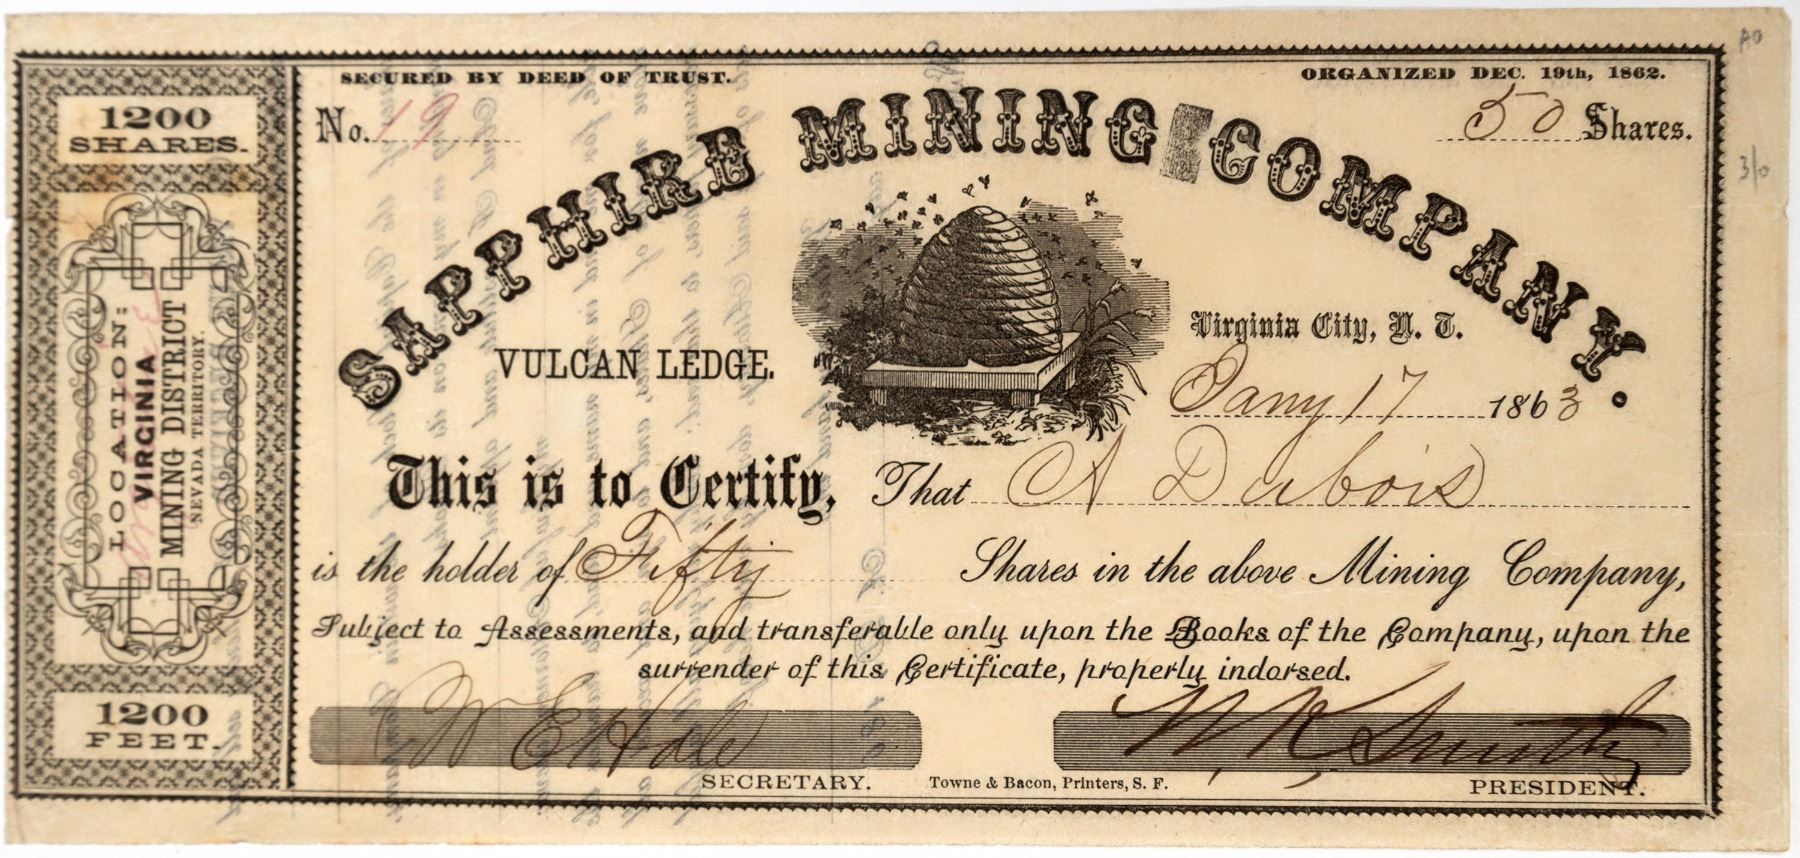 SECURED BY DEED OF TRUST.
ORGANIZED DEC. 19th, 1862.
No. 19
50 Shares.
SAPPHIRE MINING COMPANY.
VULCAN LEDGE.
Virginia City, N. T.
Jany 17 1863
This is to Certify, That A Dubois
is the holder of Fifty Shares in the above Mining Company,
Subject to Assessments, and transferable only upon the Books of the Company, upon the
surrender of this Certificate, properly indorsed.
W E Hale
W. R. Smith
SECRETARY.
Towne & Bacon, Printers, S. F.
PRESIDENT.
1200
SHARES.
LOCATION:
VIRGINIA
MINING DISTRICT
NEVADA TERRITORY.
1200
FEET.